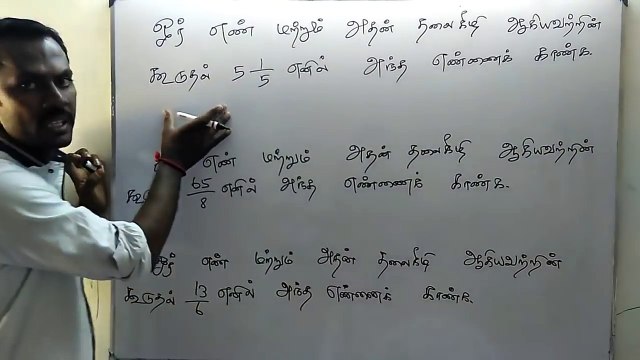 ஓர் எண் மற்றும் அதன் தலைகீழி ஆகியவற்றின்
கூடுதல் 5 1/5 எனில் அந்த எண்ணைக் காண்க.
எண் மற்றும் அதன் தலைகீழி ஆகியவற்றின்
65/8 எனில் அந்த எண்ணைக் காண்க.
ஓர் எண் மற்றும் அதன் தலைகீழி ஆகியவற்றின்
கூடுதல் 13/6 எனில் அந்த எண்ணைக் காண்க.